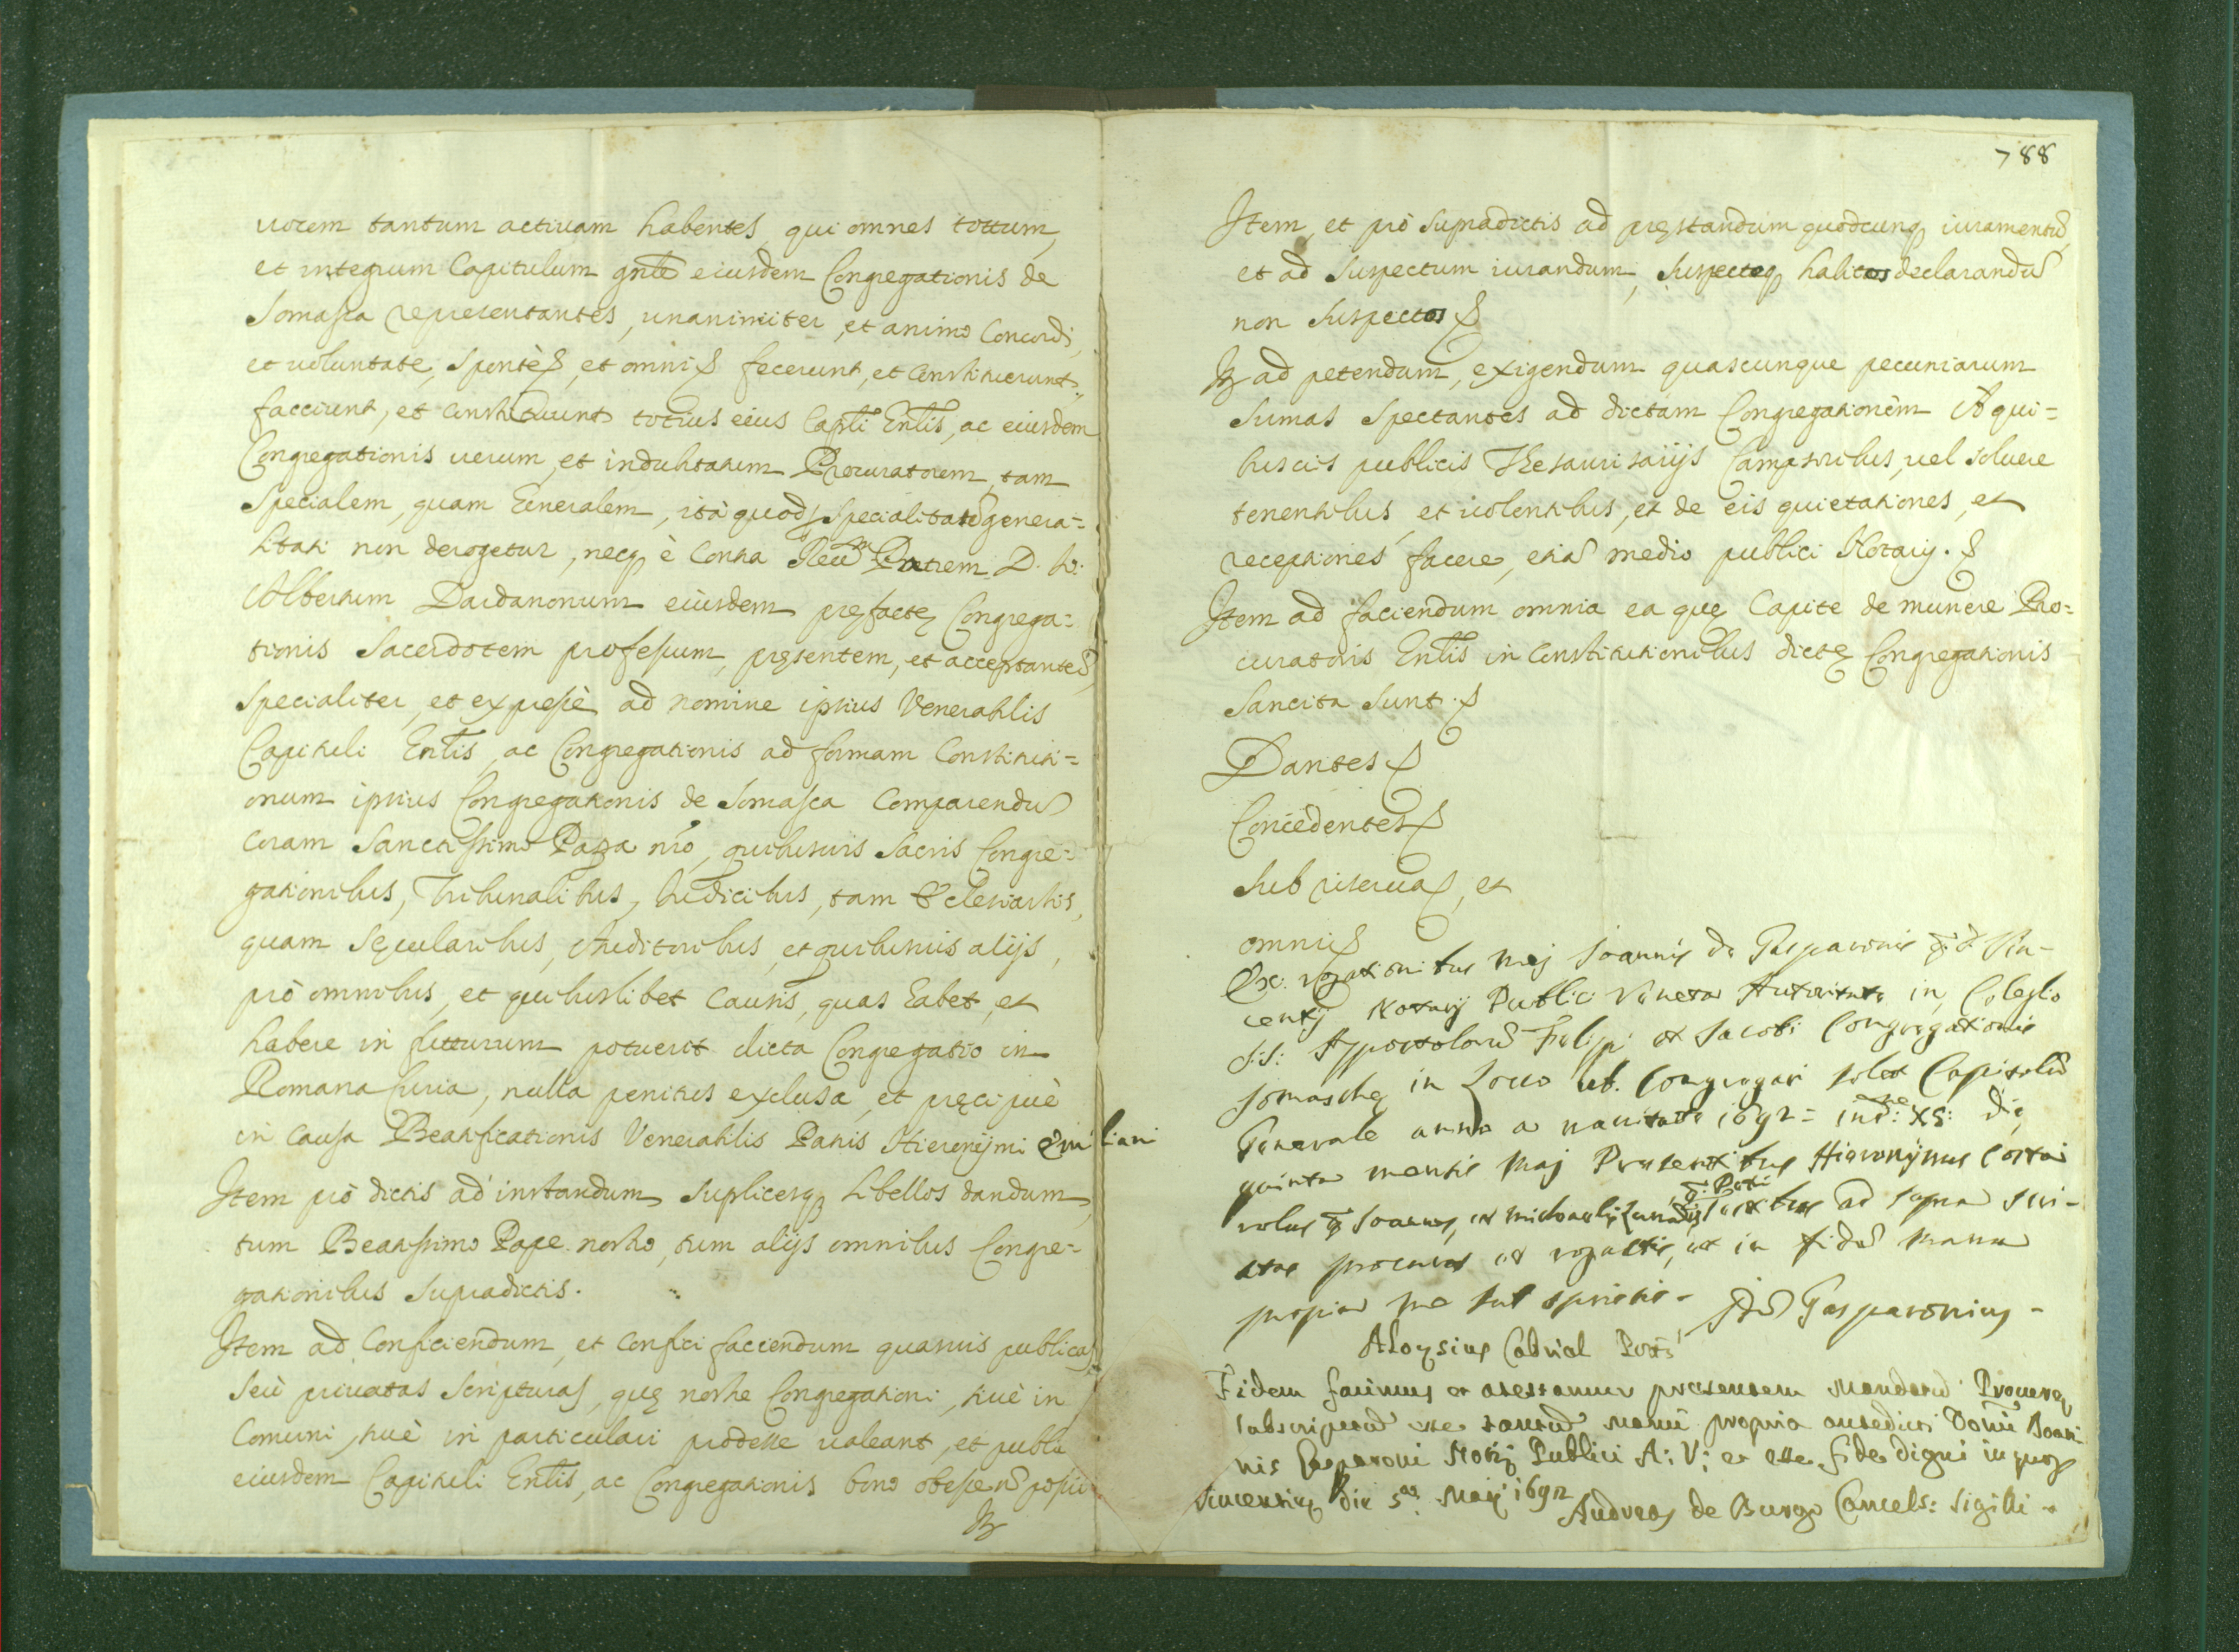 uocem tantum actiuam habentes, qui omnes tottum,
et integrum Capitulum gnle eiusdem Congregationis de
Somasca representantes, unanimiter, et animo Concordi,
et uoluntate, Spontè, et omni fecerunt, et Constituerunt,
facciunt, et Constituunt totius eius Capli Gnlis, ac eiusdem
Congregationis uerum, et indubitatum Procuratorem, tam
Specialem, quam Generalem, ità quod Specialitas genera=
litati non derogetur, neq è Contra Reu.m Patrem D.
Albertum Dardanonum eiusdem pręfactę Congrega=
tionis Sacerdotem professum, pręsentem, et acceptante,
Specialiter, et expressè ad nomine ipsius Venerabilis
Capituli Gnlis, ac Congregationis ad formam Constituti=
onum ipsius Congregationis de Somasca Comparendu
coram Sanctissimo Papa nro, quibusuis Sacris Congre=
gationibus, Tribunalibus, Iudicibus, tam Ecclesiastis,
quam Sęcularibus, Auditoribus, et quibusuis alijs,
prò omnibus, et quibuslibet Causis, quas habet, et
habere in futturum potuerit dicta Congregatio in
Romana Curia, nulla penitus exclusa, et pręcipuè
in causa Beatificationis Venerabilis Patris Hieronymi Emiliani
Item prò dictis ad instandum Suplicesq libellos dandum,
tum Beatissimo Pape nostro, tum alijs omnibus Congre=
gationibus Supradictis.
Item ad Conficiendum, et confici facciendum quasuis publicas
Seù priuatas Scripturas, quę nostre Congregationi, siuè in
Comuni, siuè in particulari prodesse ualeant, et
eiusdem Capituli Gnlis, ac Congregationis bono
It
788
Item, et prò Supradictis ad pręstandum quodcunq iuramentu,
et ad Suspectum iurandum, Suspectosq habitos declarandu
non Suspectos
It ad petendum, exigendum quascunque pecuniarum
Sumas Spectantes ad dictam Congregationem A qui=
busuis publicis Thesaurisarijs Campsoribus, uel soluere
tenentibus et uolentibus, et de eis quietationes, et
receptiones facere, etia medio publici Notarij.
Item ad faciendum omnia ea quę Capite de munere Pro=
curatoris Gnlis in Constitutionibus dictę Congregationis
Sancita Sunt.
Dantes
Concedentes
Sub riserua, et
omni
Ex rogationibus mej Joannis de Gasparonis q. d. Vin-
centij Notarij Publici Veneta Autoritate in Colegio
S.S. Appostoloru Filipi et Jacobi Congregationis
Somaschę in Loco ub. Congregari solet Capitolu
Generale anno a natiuitate 1692 = ind.ne XV: die
quinta mensis Maj Presentibus Hieronymus
q. Joannes, et Michaelis ad supra
et rogattis, et in fide manu
propria me sub
Gasparonius-
Aloysius Cabrial
Fidem facimus et atestamur presentem Mandatu Procurę
subscriptu esse manu propria antedicti Domi Joan-
nis Gasparoni Notij Publici A: V: et esse fide digni in quor
Vincentię die 5.a Maij 1692
Andreas de Burgo Cancels: Sigilli